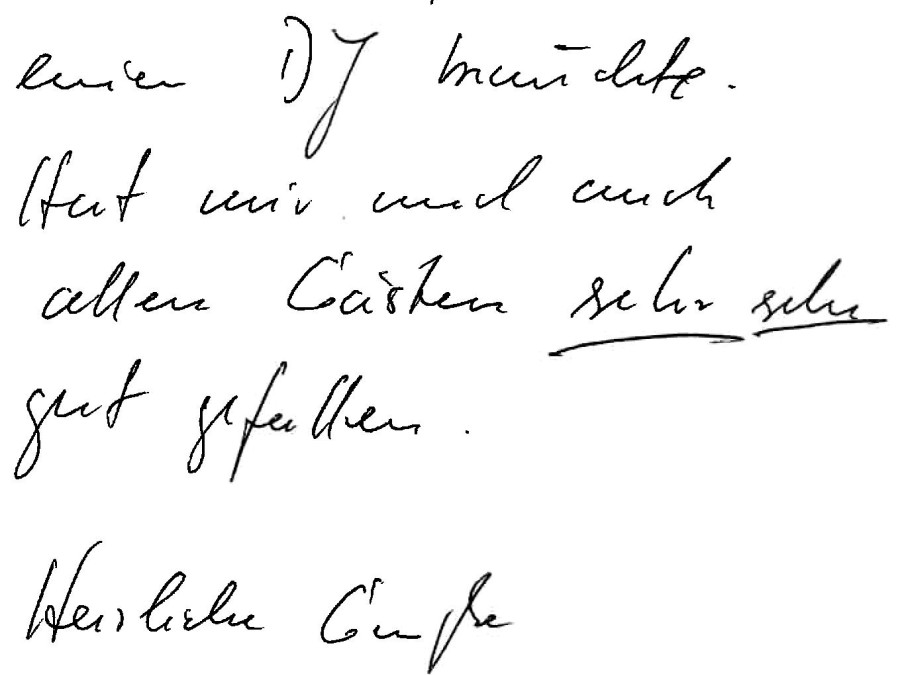 einen DJ bräuchte.
Hat mir und auch
allen Gästen sehr sehr
gut gefallen.
Herzliche Grüße